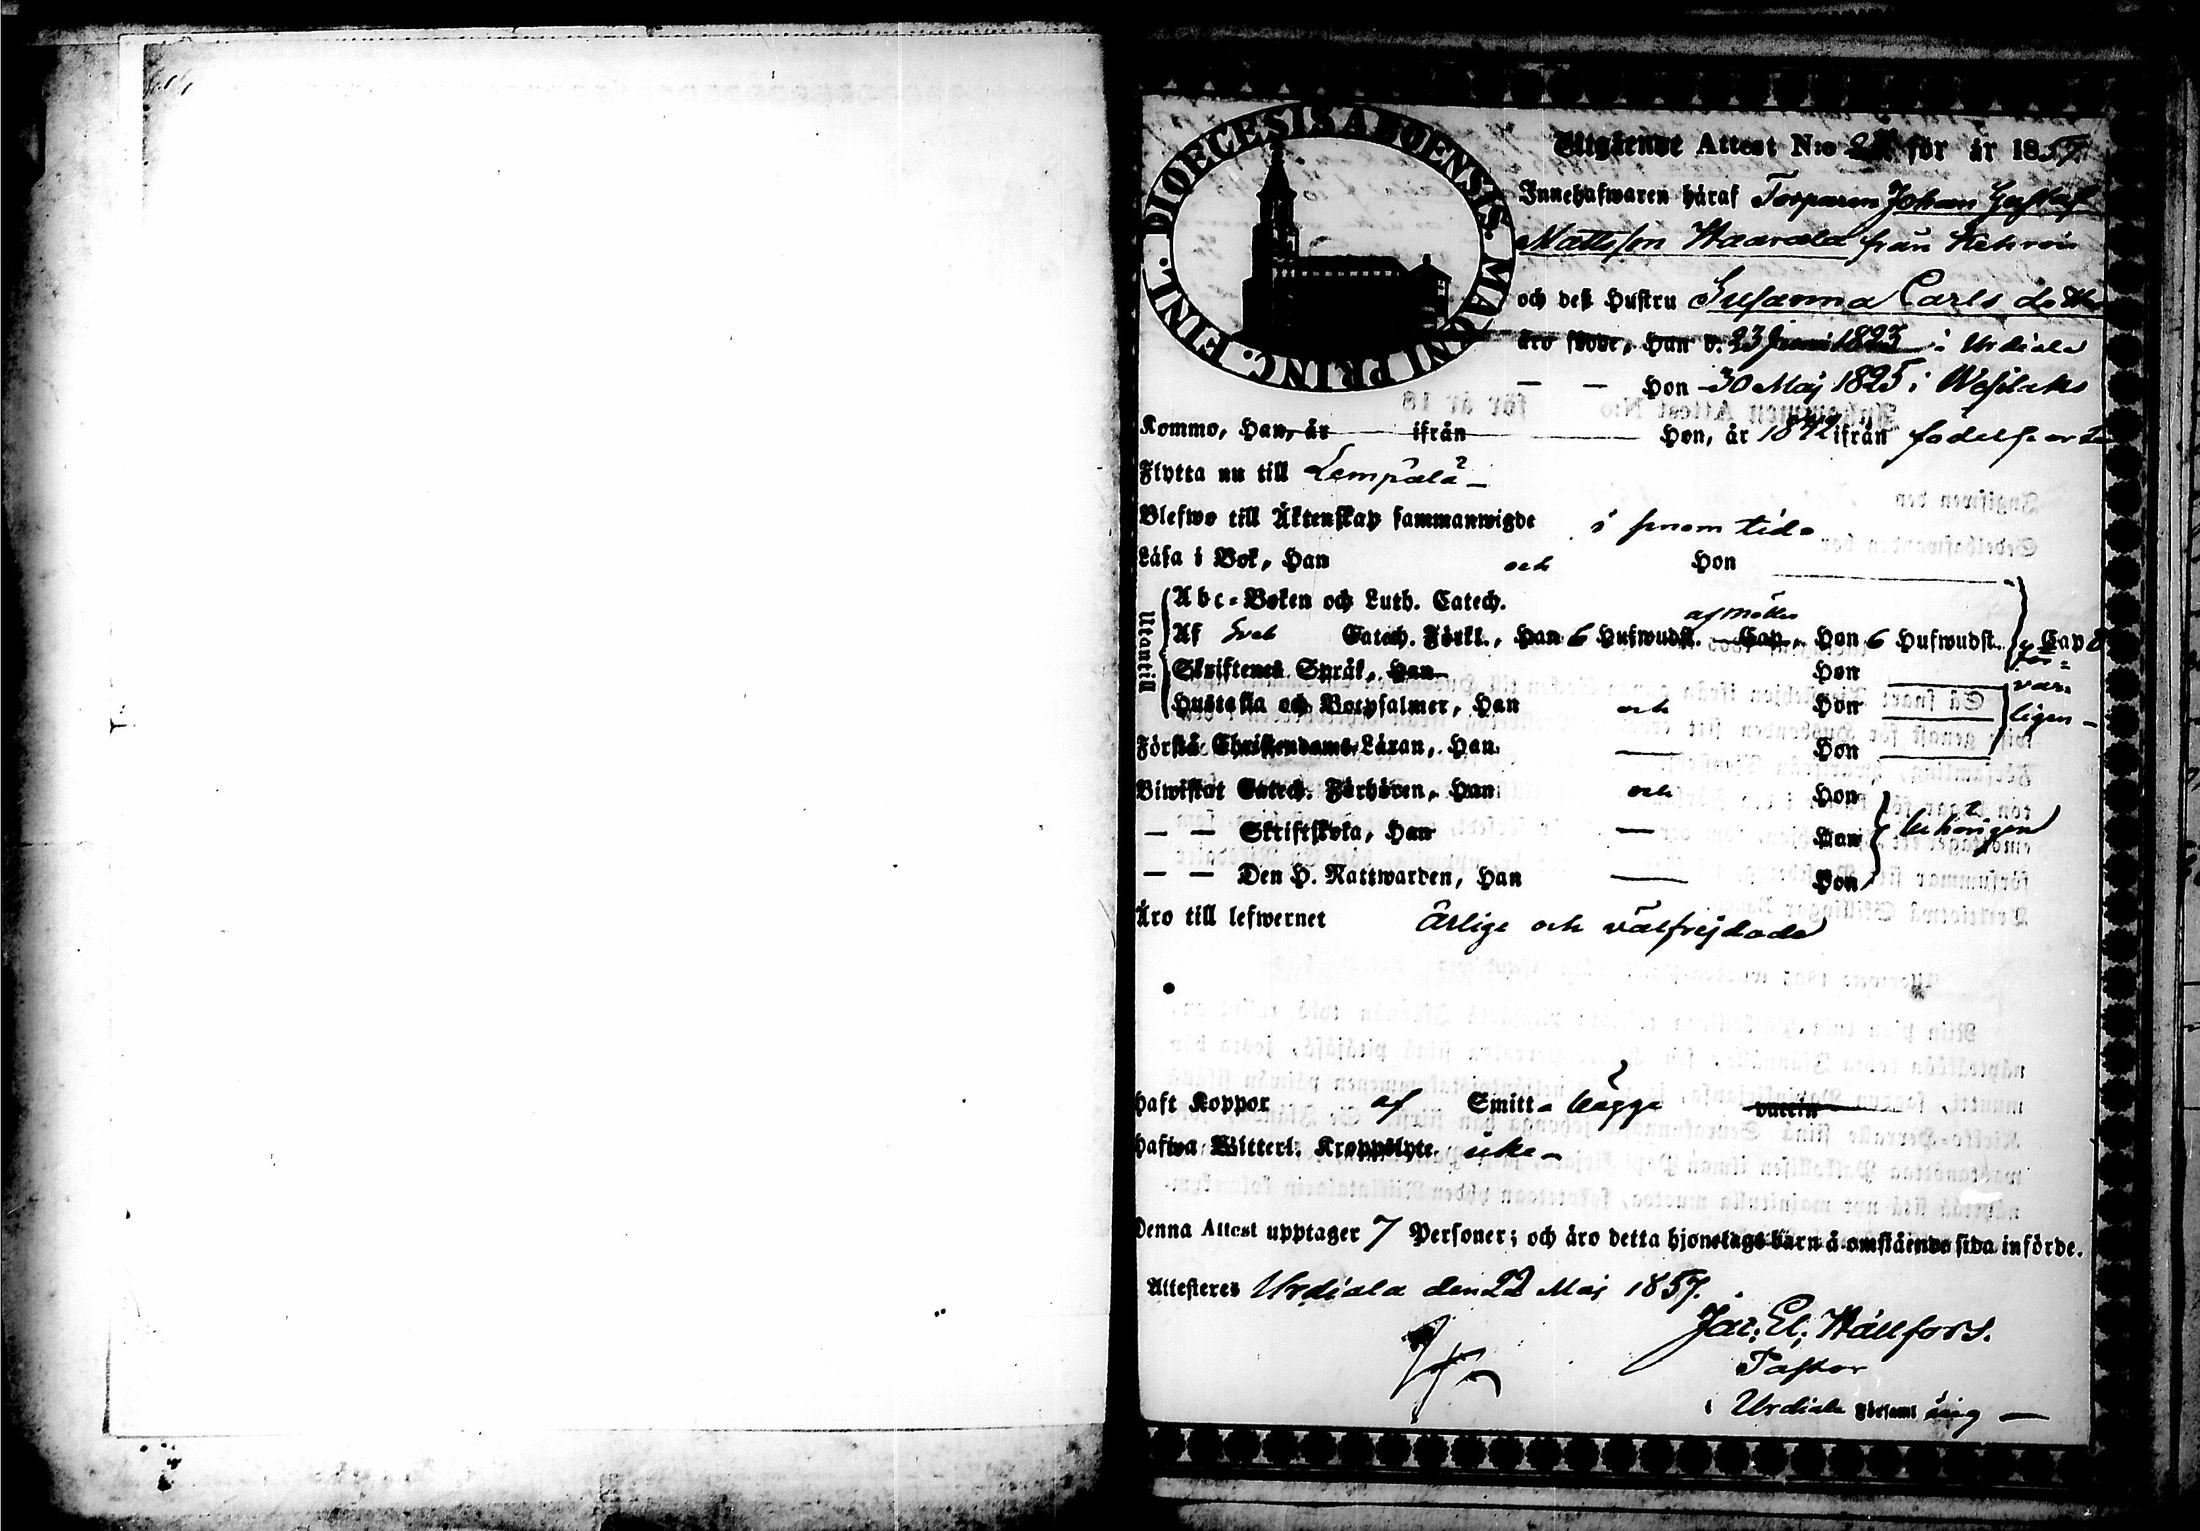 DIOECESIS ABOENSIS. MAGNI PRINC. FINL.
Utgående Attest N:o för år 1857.
Innehafwaren häraf Torparen Johan Gustaf
Mattsson Haavala från
och deß Hustru Susanna Carls dotter
äro födde, Han d. 23 Juni 1823 i Urdiala
— — Hon 30 Maj 1825 i Wesilaks
Kommo, Han, år ifrån Hon, år 1842 ifrån födelseorten
Flytta nu till Lempälä
Blefwo till Äktenskap sammanwigde i sinom tid
Läsa i Bok, Han och Hon
Utantill
Abc-Boken och Luth. Catech.
Af Sveb Catech. Förkl., Han 6 Hufwudst. Cap., Hon 6 Hufwudst. Cap
Skriftenes Språk, Han Hon
Hustafla och Botpsalmer, Han och Hon
Förstå Christendoms-Läran, Han — Hon
Biwistat Catech. Förhören, Han och Hon
— — Skriftskola, Han — Han
behörigen
— — Den H. Nattwarden, Han — Hon
Äro till lefwernet ärlige och välfrejdade
Haft Koppor af Smitt
Hafwa Witterl. Kroppslyte icke
Denna Attest upptager 7 Personer; och äro detta hjonelags barn å omstående sida införde.
Attesteres Urdiala den 22 Maj 1857.
Jac. El. Hällfors.
Pastor
i Urdiala Församling